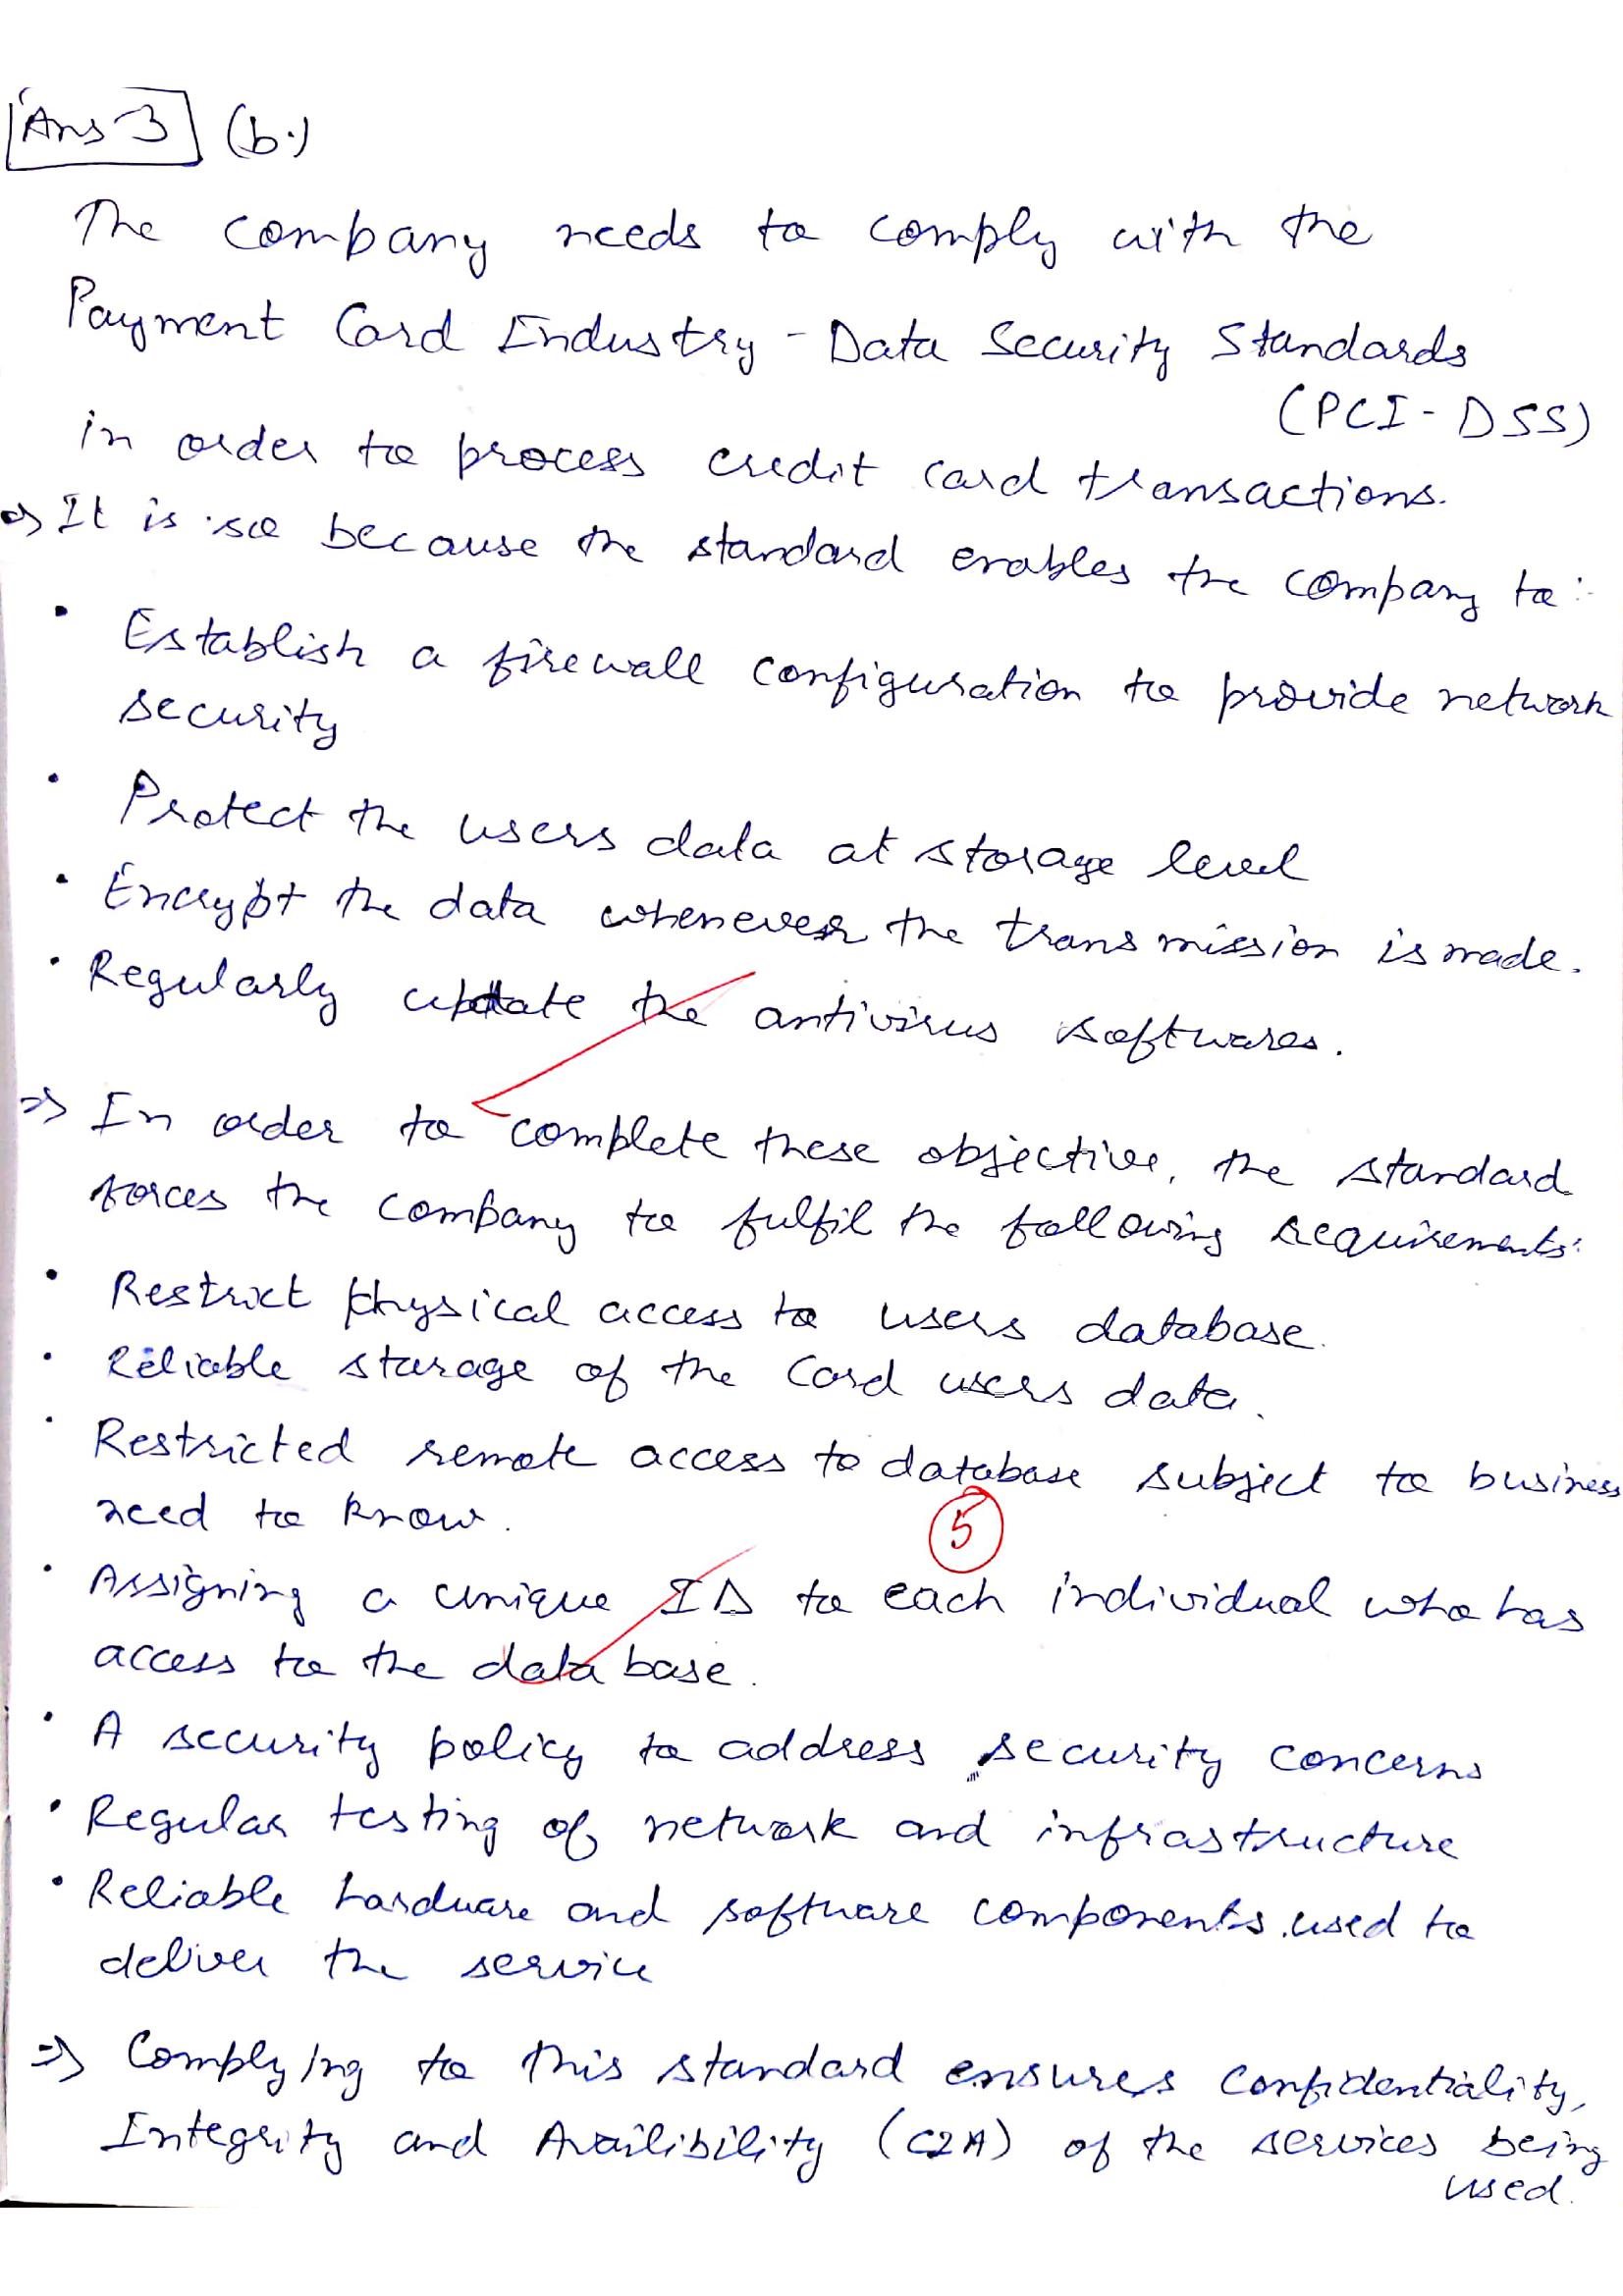 Ans 3 (b.)
The company needs to comply with the
Payment Card Industry - Data Security Standards
(PCI-DSS)
in order to process credit card transactions.
⇒ It is so because the standard enables the company to:-
• Establish a firewall configuration to provide network
security
• Protect the users data at storage level
• Encrypt the data whenever the transmission is made.
• Regularly update the antivirus softwares.
⇒ In order to complete these objective, the standard
forces the company to fulfil the following requirements:
• Restrict physical access to users database.
• Reliable storage of the card users data.
• Restricted remote access to database subject to business
need to know.
5
• Assigning a unique ID to each individual who has
access to the database.
• A security policy to address security concerns
• Regular testing of network and infrastructure
• Reliable hardware and software components used to
deliver the service
⇒ Complying to this standard ensures Confidentiality,
Integrity and Availibility (CIA) of the services being
used.